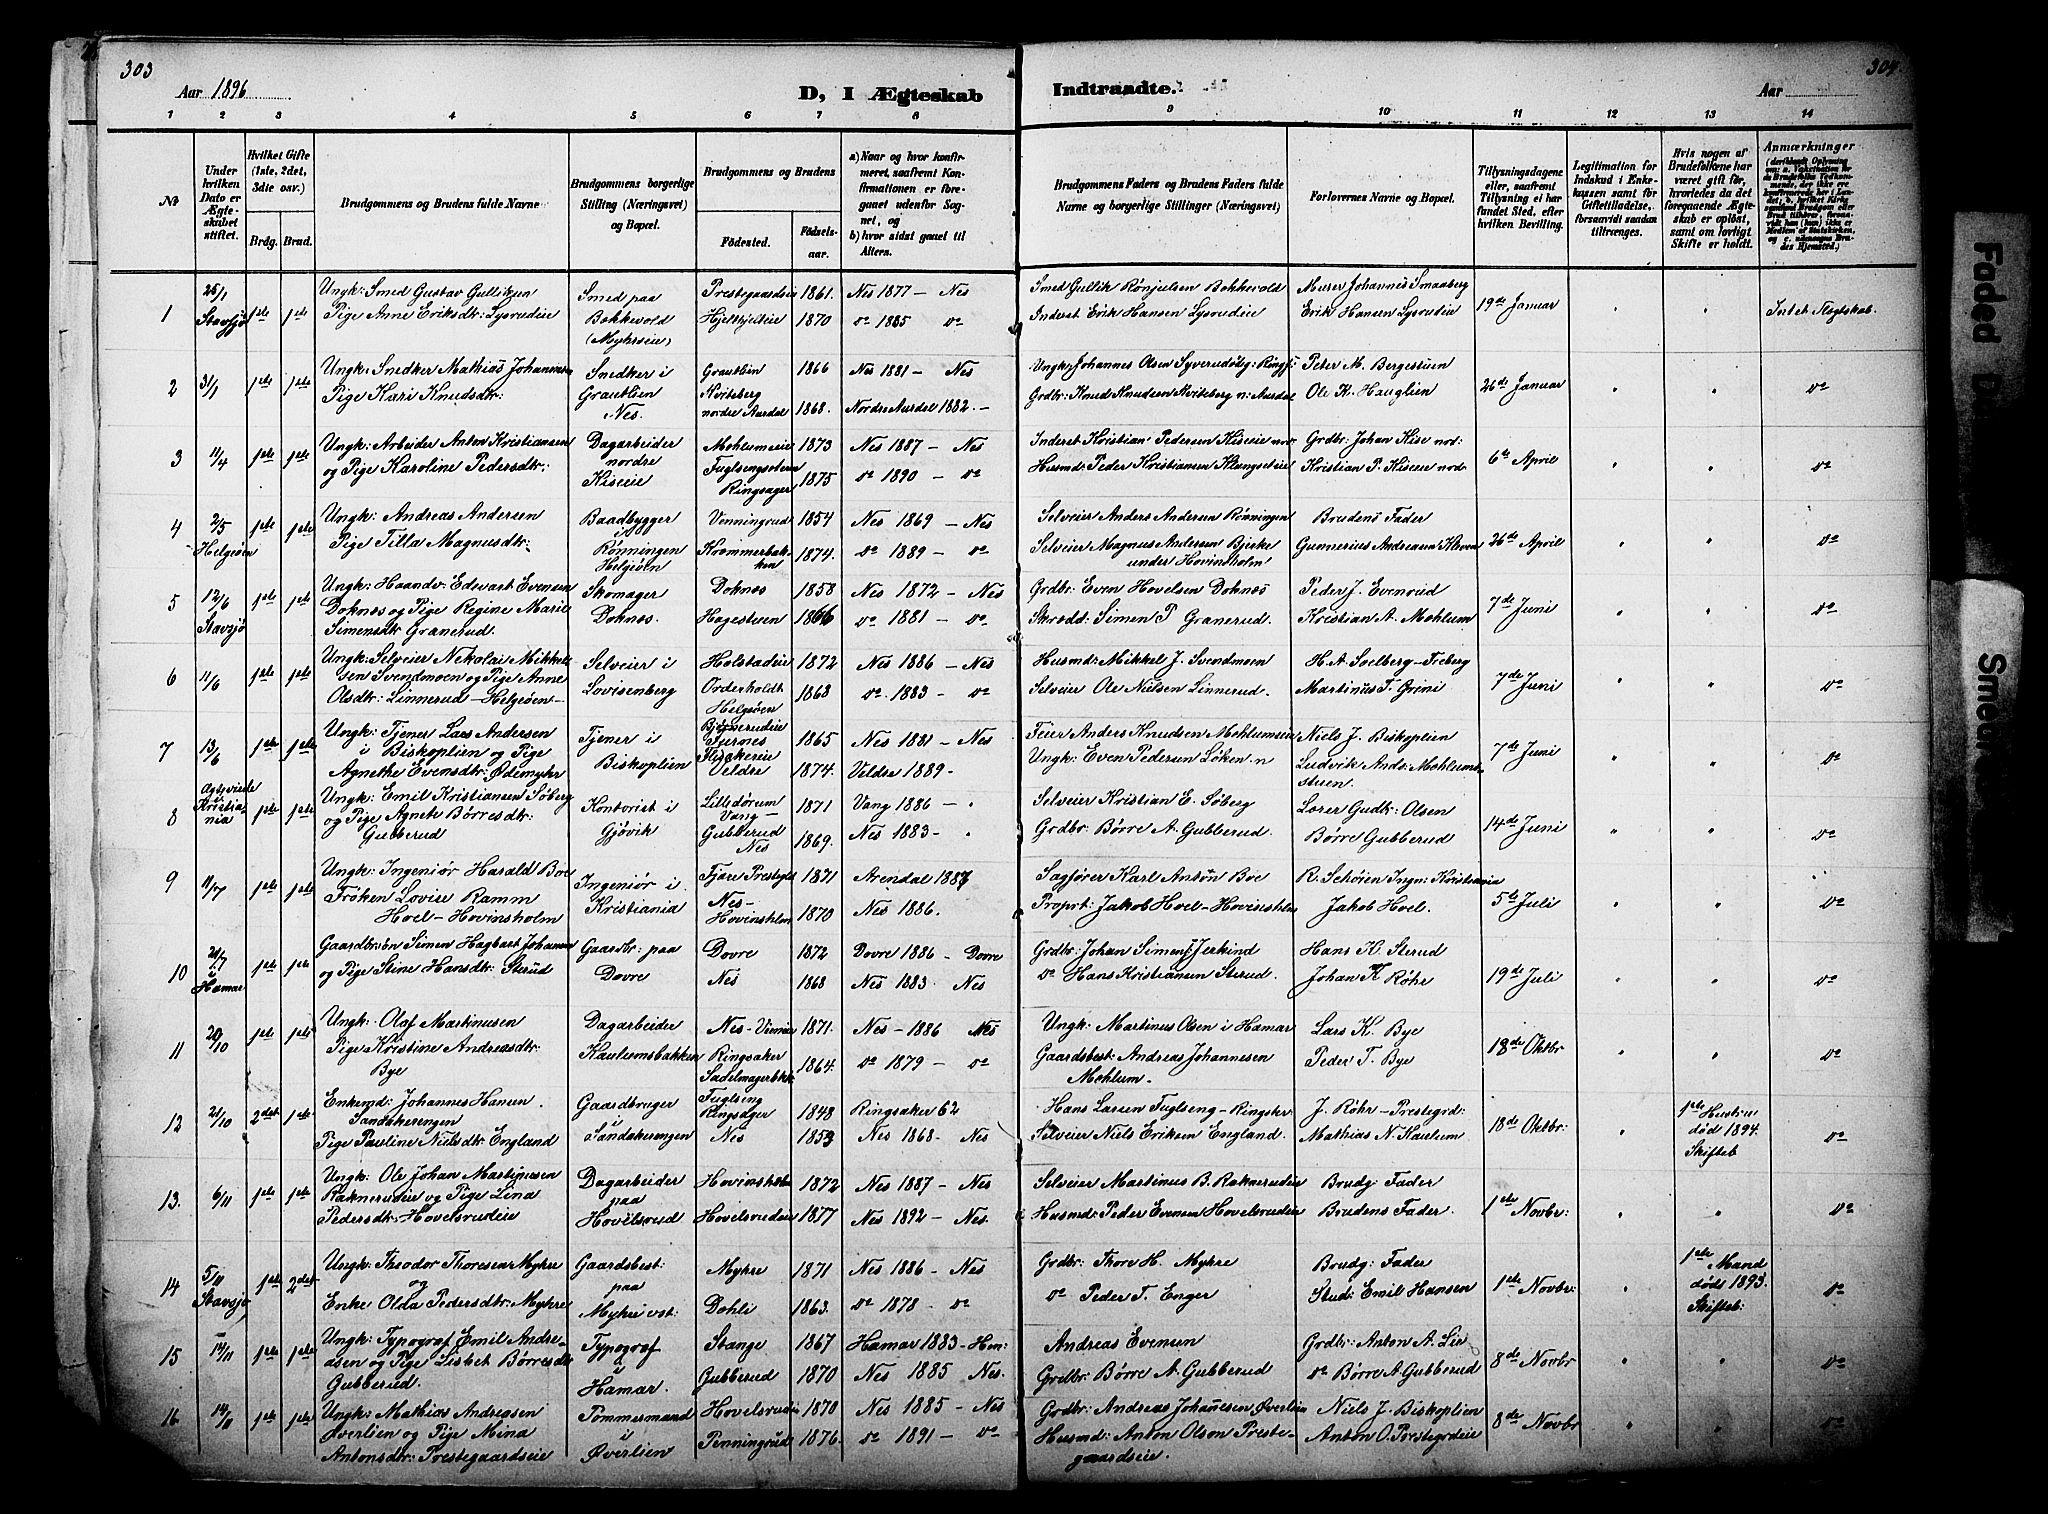 303
304
Aar 1896
D, I Ægteskab
Indtraadte.
Aar
1 2 3 4 5 6 7 8 9 10 11 12 13 14
No
Under hvilken Dato er Ægteskabet stiftet.
Hvilket Gifte (1ste, 2det, 3die osv.)
Brdg. Brud.
Brudgommens og Brudens fulde Navne.
Brudgommens borgerlige Stilling (Næringsvei) og Bopæl.
Brudgommens og Brudens
Fødested.
Fødselsaar.
a) Naar og hvor konfirmeret, saafremt Konfirmationen er foregaaet udenfor Sognet, og
b) hvor sidst gaaet til Alters.
Brudgommens Faders og Brudens Faders fulde Navne og borgerlige Stillinger (Næringsvei)
Forlovernes Navne og Bopæl.
Tillysningsdagene eller, saafremt Tillysning ei har fundet Sted, efter hvilken Bevilling.
Legitimation for Indskud i Enkekassen samt for Giftetilladelse, forsaavidt saadan tiltrænges.
Hvis nogen af Brudefolkene har været gift før, hvorledes da det foregaaende Ægteskab er opløst, samt om lovligt Skifte er holdt.
Anmærkninger
1 25/1 Stavsjø 1ste 1ste Ungk: Smed Gustav Gulliksen Smed paa Bokkevold (Myhrseie) Prestegaardseie 1861. Nes 1877 – Nes Smed Gullik Rønjelsen Bokkevold Murer Johannes Smaaberg 19de Januar Intet Slegtskab.
Pige Anne Eriksdtr: Lysrudeie Hjelkhjelteie 1870 do 1885 do Inderst Erik Hansen Lysrudeie Erik Hansen Lysrudeie
2 31/1 1ste 1ste Ungk: Snedker Mathias Johannesen Snedker i Grautlien Nes. Grautlien 1866 Nes 1881 – Nes Ungk: Johannes Olsen Syverudølig: Rings: Peter M. Bergestuen 26de Januar do
Pige Kari Knudsdtr: Kviteberg nordre Aurdal 1868. Nordre Aurdal 1882. – Grdbr: Knud Knudsen Kviteberg n: Aurdal Ole K. Hauglien
3 11/4 1ste 1ste Ungk: Arbeider Anton Kristiansen Dagarbeider nordre Kiseie Mohlumseie 1873 Nes 1887 – Nes Inderst Kristian Pedersen Kiseie nor: Grdbr: Johan Kise nod: 6te April do
og Pige Karoline Pedersdtr: Fuglsengstuen Ringsager 1875 do 1890 – do Husmd: Peder Kristiansen Klangseleie Kristian P. Kiseeie nod.
4 2/5 Helgeøen 1ste 1ste Ungk: Andreas Andersen Baadbygger i Rønningen Helgeøen Venningrud 1854 Nes 1869 – Nes Selveier Anders Andersen Rønningen Brudens Fader 26de April do
Pige Tilla Magnusdtr: Krommerbakken 1874. do 1889 – do Selveier Magnus Andersen Bjerke under Hovinsholm Gunnerius Andreasen Kleven
5 12/6 Stavsjø 1ste 1ste Ungk: Haandv: Edvart Evensen Skomager Doknes. Doknes 1858 Nes 1872 – Nes Grdbr: Even Hovelsen Doknes Peder J. Evenrud 7de Juni do
Doknes og Pige Regine Marie Simensdtr Granerud. Hagestuen 1866 do 1881 – do Skrædd: Simen P. Granerud. Kristian A. Mohlum
6 11/6 1ste 1ste Ungk: Selveier Nekolai Mikkelsen Svendmoen og Pige Anne Selveier i Lovisenberg Holstadeie 1872 Nes 1886 – Nes Husmd: Mikkel J. Svendmoen H. A. Soelberg – Freberg 7de Juni do
Olsdtr: Linnerud – Helgeøen – Orderholdt Helgeøen 1863 do 1883 – do Selveier Ole Nielsen Linnerud. Martinus T. Grini
7 13/6 1ste 1ste Ungk: Tjener Lars Andersen i Biskoplien og Pige Tjener i Biskoplien Furnes 1865 Nes 1881 – Nes Feier Anders Knudsen Mohlumseie Niels J. Biskoplien 7de Juni do
Agnethe Evensdtr: Ødemyhr Veldre 1874. Veldre 1889. Ungk: Even Pedersen Løken Ludvik Ands: Mohlumsstuen.
8 Kristiania 1ste 1ste Ungk: Emil Kristiansen Søberg Kontorist i Gjøvik Lillesørum Vang – 1871 Vang 1886 – Selveier Kristian E. Søberg Lorer Gudtr: Olsen 14de Juni do
og Pige Agnete Børresdtr: Gubberud Gubberud Nes 1869. Nes 1883 – Grdbr: Børre A. Gubberud. Børre Gubberud
9 11/7 1ste 1ste Ungk: Ingeniør Harald Boe Ingeniør i Kristiania Fjære Prestegd 1871 Arendal 1887 Sagfører Karl Anton Boe R. Schøien Ingn: Kristiania 5te Juli do
Frøken Lovise Ramm Hoel – Hovinsholm Nes – Hovinsholm 1870 Nes 1886. Proprt: Jakob Hoel – Hovinsholm Jakob Hoel.
10 21/7 i Hamar 1ste 1ste Gaardbr:søn Simen Hagbart Johansen Gaardbr: paa Dovre Dovre 1872 Dovre 1886 – Dovre Grdbr: Johan Simens: Jerkind Hans K. Sterud 19de Juli do
og Pige Stine Hansdtr: Sterud Nes 1868 Nes 1883 Nes do Hans Kristiansen Sterud. Johan K. Røhr
11 20/10 1ste 1ste Ungk: Olaf Martinusen Dagarbeider Kaulumsbakken Nes – 1871. Nes – 1886 Nes Ungk: Martinus Olsen i Hamar Lars K. Bye 18de Oktbr do
Pige Kristine Andreasdtr: Bye Ringsaker Sadelmagerbkk: 1864. do 1879 – do Gaardsbest: Andreas Johannesen Mohlum – Peder T. Bye
12 21/10 2det 1ste Enkemd: Johannes Hansen Sandakerengen Gaardbruger i Sandakerengen Fuglseng Ringsager 1848 Ringsaker 62 Hans Larsen Fuglseng – Ringskr: J. Røhr – Prestegrd: 18de Oktbr: 1ste Hustru død 1894. Skifteb: do
Pige Pauline Nielsdtr: England Nes 1853 Nes 1868 – Nes Selveier Niels Eriksen England. Mathias N. Kaulum
13. 6/11 1ste 1ste Ungk: Ole Johan Martinusen Dagarbeider paa Hovelsrud Hovinsholm 1872 Nes 1887 – Nes Selveier Martinus B. Raknerudeie Brudg: Fader 1ste Novbr: do
Raknerudeie og Pige Lina Pedersdtr: Hovelsrudeie Hovelsrudeie 1877 Nes 1892 – Nes. Husmd: Peder Evensen Hovelsrudeie Brudens Fader
14 5/11 Stavsjø 1ste 2det Ungk: Theodor Thoresen Myhre Gaardsbest: paa Myhre vst: Myhre 1871 Nes 1886 – Nes Grdbr: Thore H. Myhre Brudg: Fader 1ste Novbr: 1ste Mand døds 1893. Skifteb: do
og Enke Olda Pedersdtr: Myhre Dohli 1863. do 1878 – do do Peder T. Enger Stud: Emil Hansen
15 14/11 1ste 1ste Ungk: Typograf Emil Andreasen og Pige Lisbet Børresdtr Typograf i Hamar. Stange 1867 Hamar 1883 – Ham: Andreas Evensen Grdbr: Anton A. Lie 8de Novbr do
Gubberud. Gubberud 1870 Nes 1885 Nes. Grdbr: Børre A. Gubberud do Børre A. Gubberud
16 14/11 1ste 1ste Ungk: Mathias Andreasen Tømmermand i Øverlien Hovelsrudeie 1870 Nes 1885 – Nes Grdbr: Andreas Johannesen Øverlien Niels J. Biskoplien 8de Novbr do
Øverlien og Pige Mina Antonsdtr: Prestegaardseie Penningrud 1876. do 1891 – do Husmd: Anton Olsen Prestegaardseie. Anton O. Prestegrdeie
Faded